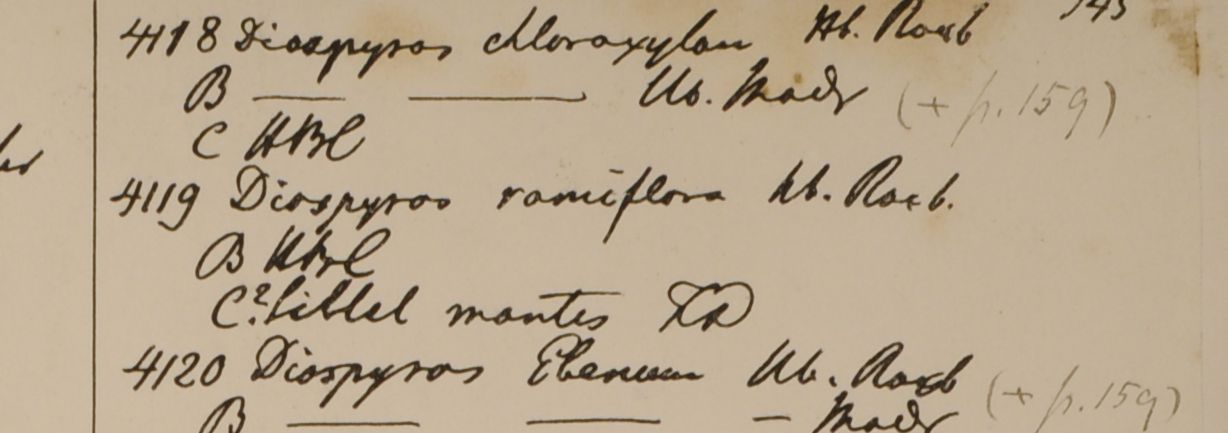 143
4118 Diospyros chloroxylon Hb. Roxb
B — — Hb. Madr (+ p. 159)
C HBC
4119 Diospyros ramiflora Hb. Roxb.
B HBC
C? Sillet montes FD
4120 Diospyros Ebenum Hb. Roxb (+ p. 159)
B — — — Madr